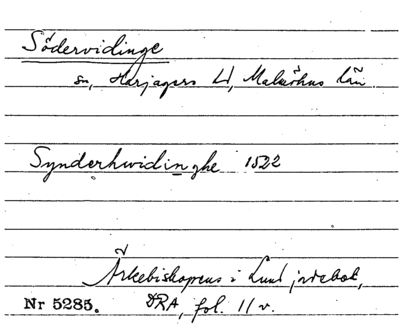 Södervidinge
sn, Harjagers hd, Malmöhus län
Synderhwidinghe 1522
Ärkebiskopens i Lund jordebok,
Nr 5285. DRA, fol. 11 v.